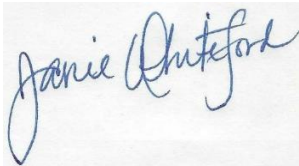 Janie Whiteford